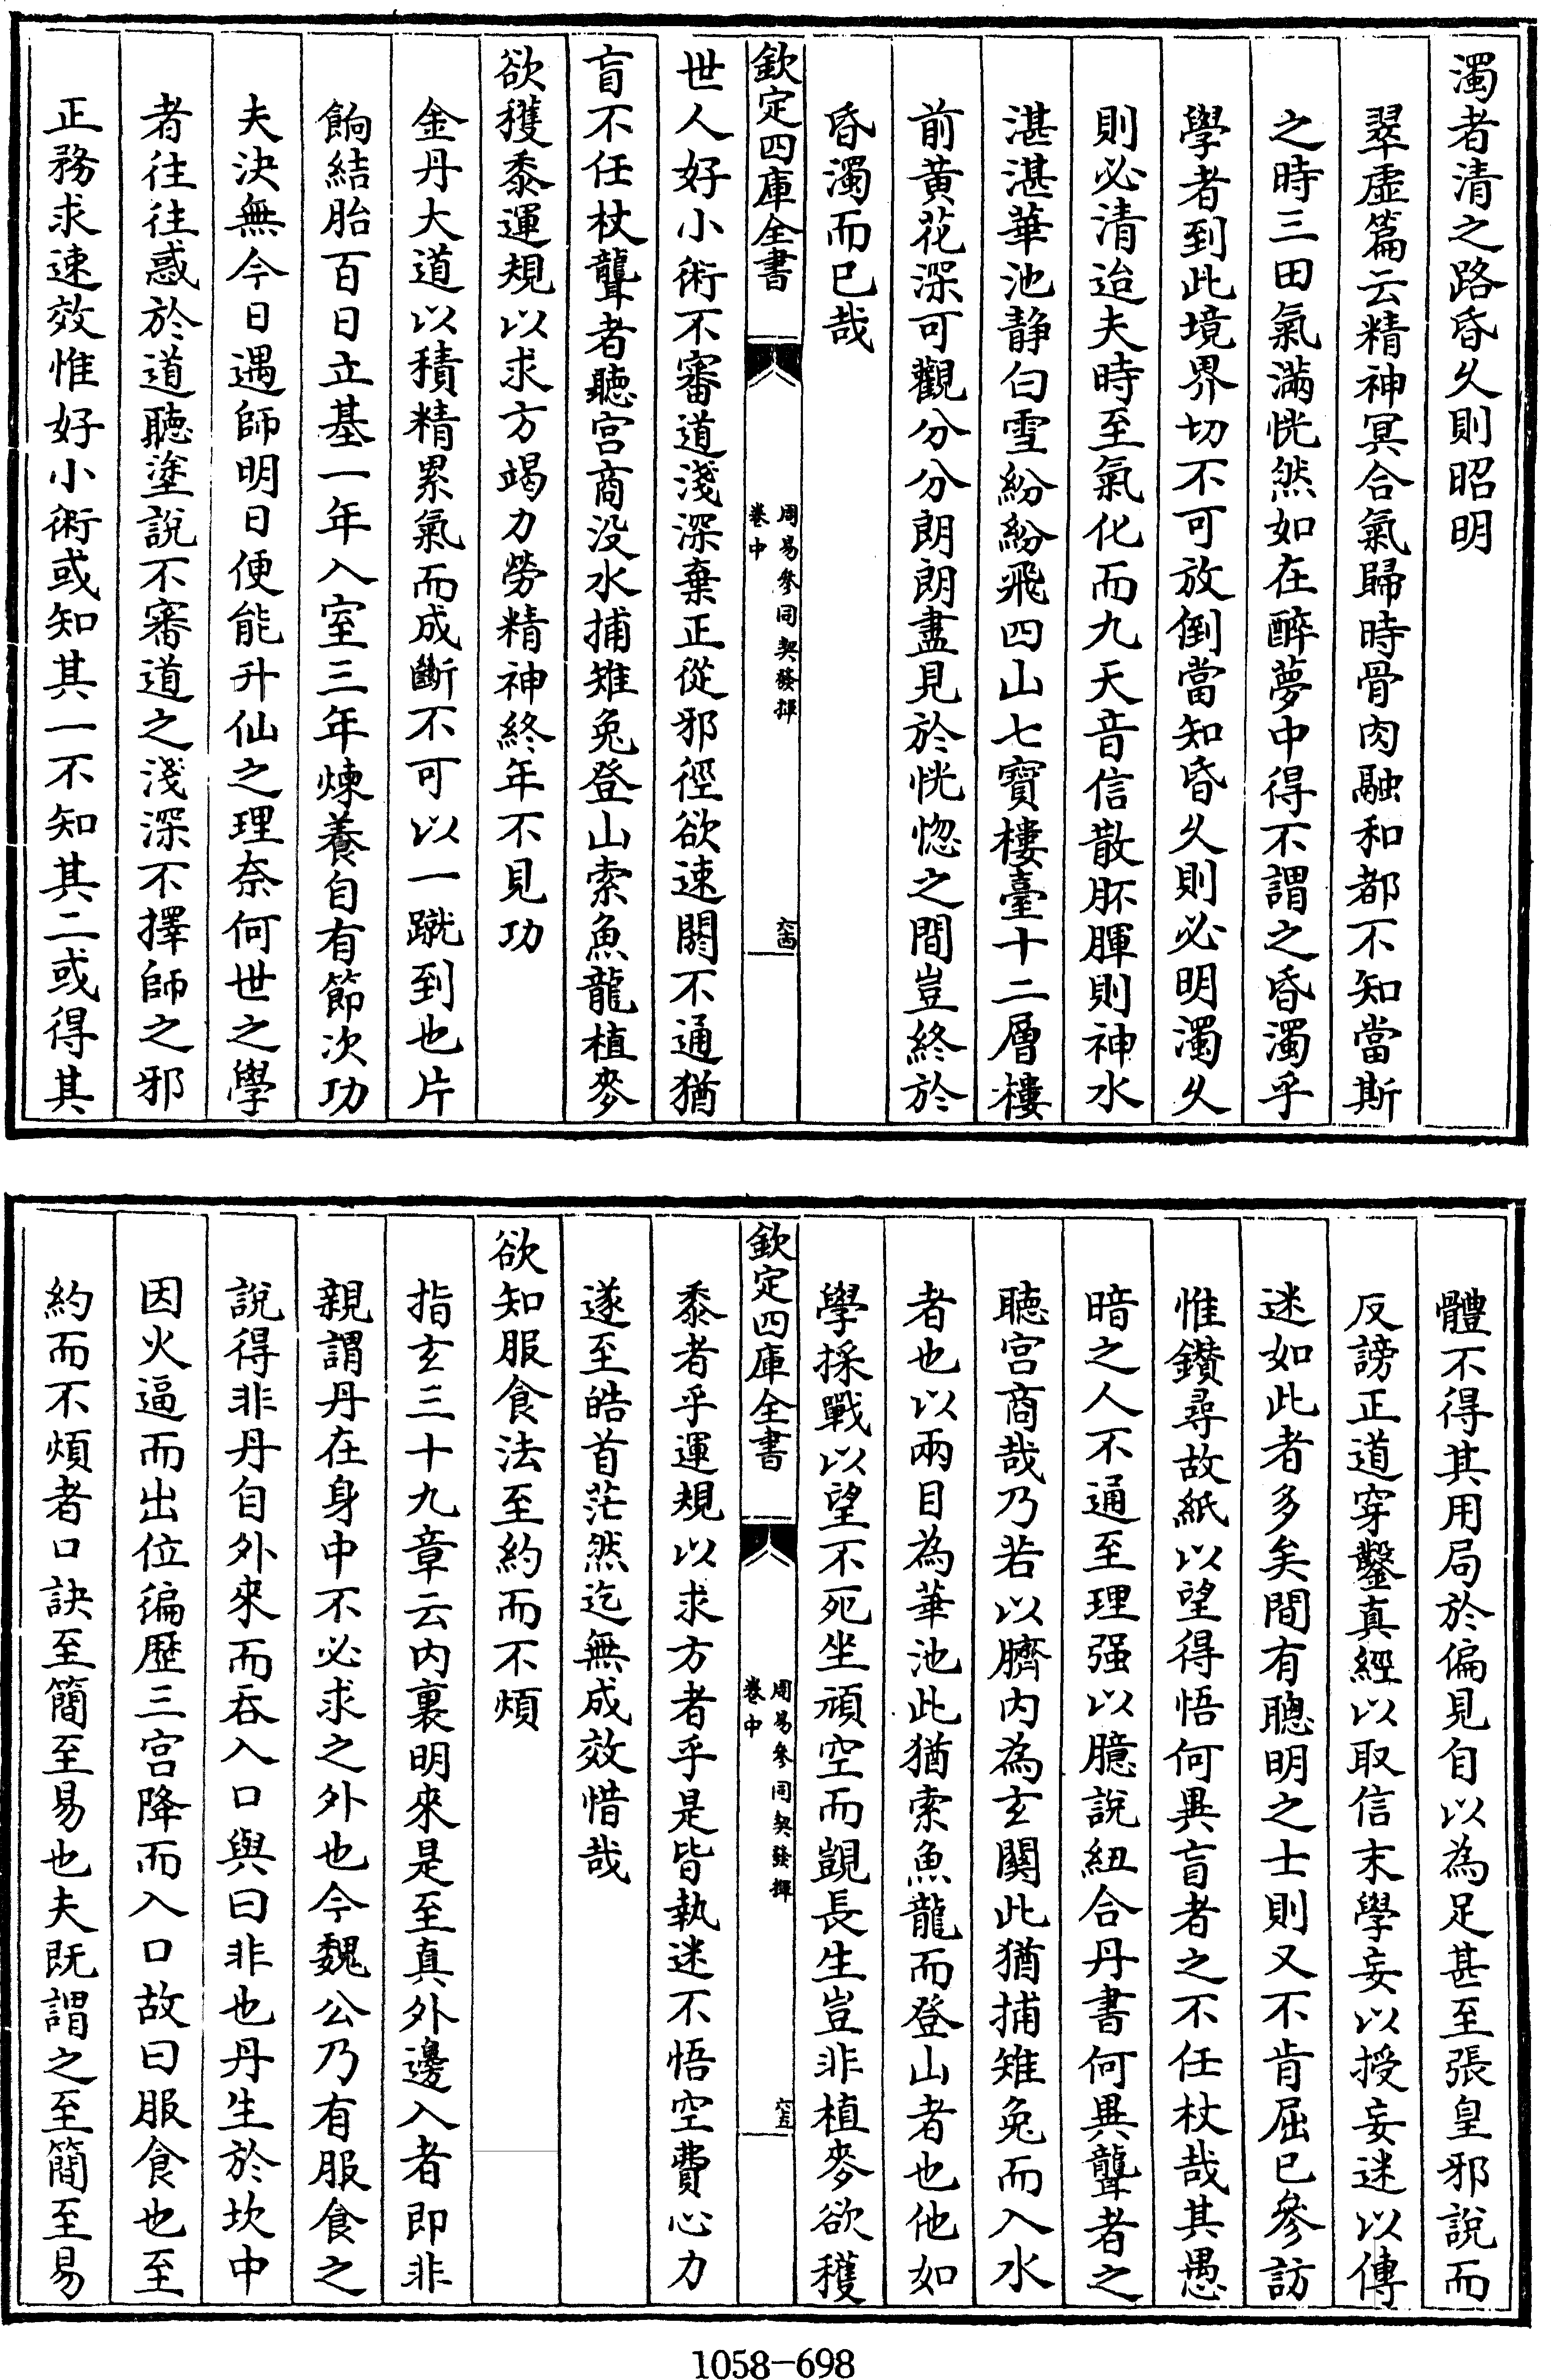 濁者清之路昏久則昭明
翠虛篇云精神冥合氣歸時骨肉融和都不知當斯
之時三田氣滿恍然如在醉夢中得不謂之昏濁乎
學者到此境界切不可放倒當知昏久則必明濁久
則必清迨夫時至氣化而九天音信散胚腪則神水
湛湛華池靜白雪紛紛飛四山七寶樓臺十二層樓
前黃花深可觀分分朗朗盡見於恍惚之間豈終於
昏濁而已哉
欽定四庫全書
周易參同契發揮
卷中
六四
世人好小術不審道淺深棄正從邪徑欲速閼不通猶
盲不任杖聾者聽宫商没水捕雉兔登山索魚龍植麥
欲穫黍運規以求方竭力勞精神終年不見功
金丹大道以積精累氣而成斷不可以一蹴到也片
餉結胎百日立基一年入室三年煉養自有節次功
夫決無今日遇師明日便能升仙之理奈何世之學
者往往惑於道聽塗說不審道之淺深不擇師之邪
正務求速效惟好小術或知其一不知其二或得其
體不得其用局於偏見自以為足甚至張皇邪說而
反謗正道穿鑿真經以取信末學妄以授妄迷以傳
迷如此者多矣間有聰明之士則又不肯屈已參訪
惟鑽尋故紙以望得悟何異盲者之不任杖哉其愚
暗之人不通至理强以臆說紐合丹書何異聾者之
聽宫商哉乃若以臍内為玄關此猶捕雉兔而入水
者也以兩目為華池此猶索魚龍而登山者也他如
學採戰以望不死坐頑空而覬長生豈非植麥欲穫
欽定四庫全書
周易參同契發揮
卷中
六五
黍者乎運規以求方者乎是皆執迷不悟空費心力
遂至皓首茫然迄無成效惜哉
欲知服食法至約而不煩
指玄三十九章云内裏明來是至真外邊入者即非
親謂丹在身中不必求之外也今魏公乃有服食之
說得非丹自外來而吞入口與曰非也丹生於坎中
因火逼而出位徧歷三宫降而入口故曰服食也至
約而不煩者口訣至簡至易也夫既謂之至簡至易
1058-698